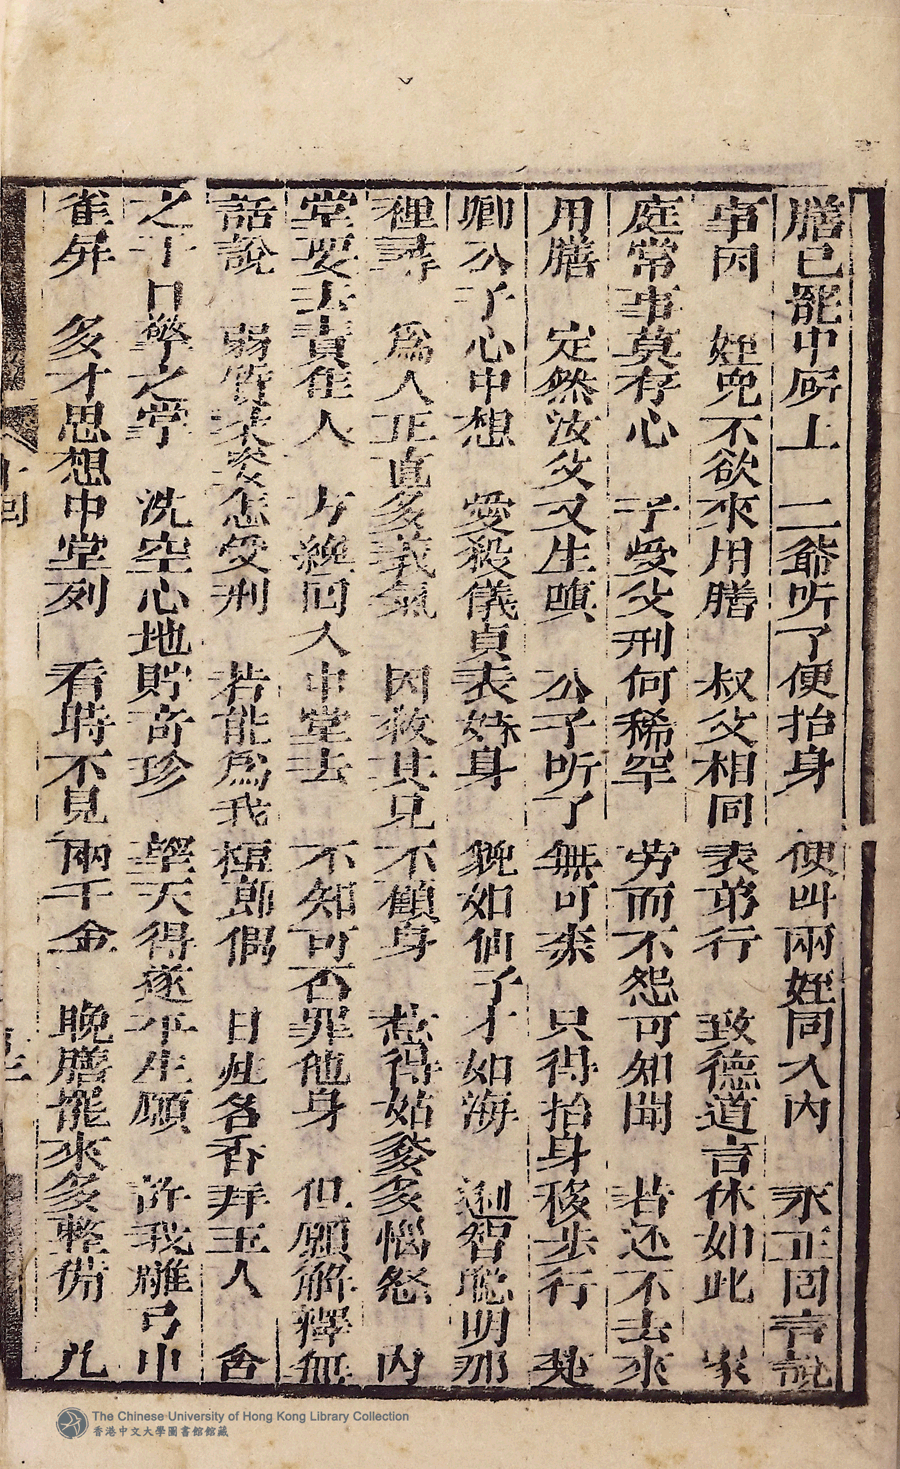 膳已罷中𪠽上 二爺听了便抬身 便叫兩姪同入內 永正回言說
事因 姪兒不欲來用膳 叔父相同表弟行 致德道言休如此 家
庭常事莫存心 子受父刑何稀罕 劳而不怨可知聞 若还不去來
用膳 定然汝父又生嗔 公子听了無可柰 只得抬身移步行 楚
卿公子心中想 愛殺儀貞表姊身 貌如仙子才如海 逈智聡明那
裡尋 為人正直多義氣 因救其兄不顧身 惹得姑爹多惱怒 內
堂要去責佳人 方纔回入中堂去 不知可否罪他身 但願解釋無
話說 弱質柔姿怎受刑 若能為我檀郎偶 日炷名香拜玉人 舍
之十口擎之掌 洗空心地貯奇珍 望天得遂平生願 許我雕弓中
雀屏 多才思想中堂列 看時不見兩千金 晚膳罷來多整備 凡
十回
The Chinese University of Hong Kong Library Collection
香港中文大學圖書館館藏